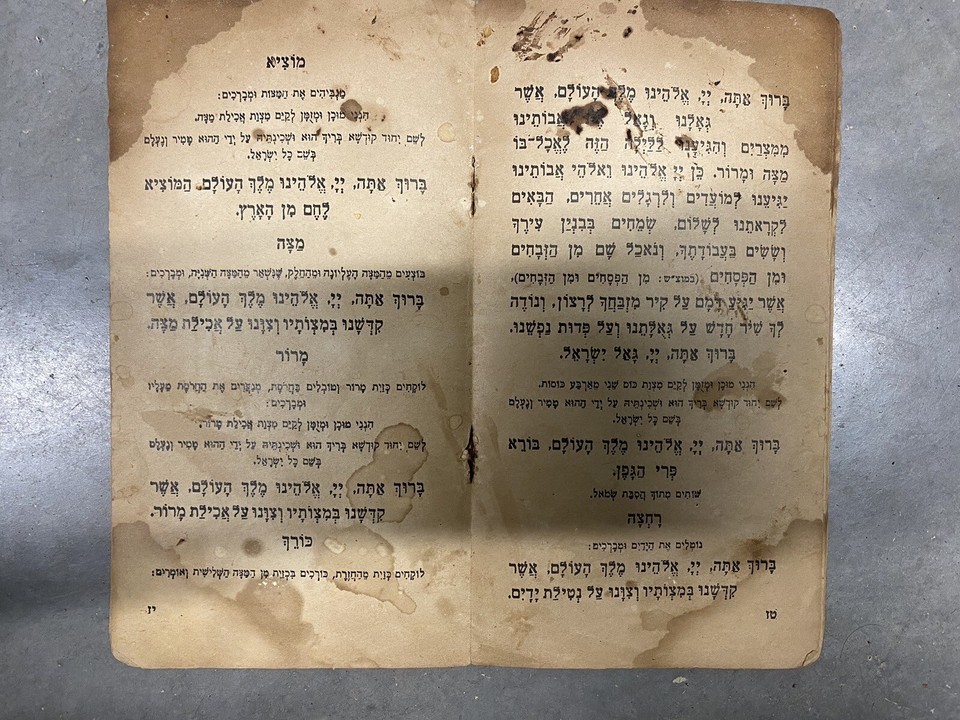 בָּרוּךְ אַתָּה, יְיָ, אֱלֹהֵינוּ מֶלֶךְ הָעוֹלָם, אֲשֶׁר
גְּאָלָנוּ וְגָאַל אֲבוֹתֵינוּ
מִמִּצְרַיִם וְהִגִּיעָנוּ לַלַּיְלָה הַזֶּה לֶאֱכָל־בּוֹ
מַצָּה וּמָרוֹר. כֵּן יְיָ אֱלֹהֵינוּ וֵאלֹהֵי אֲבוֹתֵינוּ
יַגִּיעֵנוּ לְמוֹעֲדִים וְלִרְגָלִים אֲחֵרִים, הַבָּאִים
לִקְרָאתֵנוּ לְשָׁלוֹם, שְׂמֵחִים בְּבִנְיַן עִירֶךָ
וְשָׂשִׂים בַּעֲבוֹדָתֶךָ, וְנֹאכַל שָׁם מִן הַזְּבָחִים
וּמִן הַפְּסָחִים (במוצ״ש: מִן הַפְּסָחִים וּמִן הַזְּבָחִים),
אֲשֶׁר יַגִּיעַ דָּמָם עַל קִיר מִזְבַּחֲךָ לְרָצוֹן, וְנוֹדֶה
לְךָ שִׁיר חָדָשׁ עַל גְּאֻלָּתֵנוּ וְעַל פְּדוּת נַפְשֵׁנוּ.
בָּרוּךְ אַתָּה, יְיָ, גָּאַל יִשְׂרָאֵל.
הִנְנִי מוּכָן וּמְזֻמָּן לְקַיֵּם מִצְוַת כּוֹס שֵׁנִי מֵאַרְבַּע כּוֹסוֹת.
לְשֵׁם יִחוּד קוּדְשָׁא בְּרִיךְ הוּא וּשְׁכִינְתֵּיהּ עַל יְדֵי הַהוּא טָמִיר וְנֶעְלָם
בְּשֵׁם כָּל יִשְׂרָאֵל.
בָּרוּךְ אַתָּה, יְיָ, אֱלֹהֵינוּ מֶלֶךְ הָעוֹלָם, בּוֹרֵא
פְּרִי הַגָּפֶן.
שׁוֹתִים מִתּוֹךְ הֲסִבַּת שְׂמֹאל.
רָחְצָה
נוֹטְלִים אֶת הַיָּדַיִם וּמְבָרְכִים:
בָּרוּךְ אַתָּה, יְיָ, אֱלֹהֵינוּ מֶלֶךְ הָעוֹלָם, אֲשֶׁר
קִדְּשָׁנוּ בְּמִצְוֹתָיו וְצִוָּנוּ עַל נְטִילַת יָדָיִם.
טז
מוֹצִיא
מַגְבִּיהִים אֶת הַמַּצּוֹת וּמְבָרְכִים:
הִנְנִי מוּכָן וּמְזֻמָּן לְקַיֵּם מִצְוַת אֲכִילַת מַצָּה.
לְשֵׁם יִחוּד קוּדְשָׁא בְּרִיךְ הוּא וּשְׁכִינְתֵּיהּ עַל יְדֵי הַהוּא טָמִיר וְנֶעְלָם
בְּשֵׁם כָּל יִשְׂרָאֵל.
בָּרוּךְ אַתָּה, יְיָ, אֱלֹהֵינוּ מֶלֶךְ הָעוֹלָם, הַמּוֹצִיא
לֶחֶם מִן הָאָרֶץ.
מַצָּה
בּוֹצְעִים מֵהַמַּצָּה הָעֶלְיוֹנָה וּמֵהַחֵלֶק, שֶׁנִּשְׁאַר מֵהַמַּצָּה הַשְּׁנִיָּה, וּמְבָרְכִים:
בָּרוּךְ אַתָּה, יְיָ, אֱלֹהֵינוּ מֶלֶךְ הָעוֹלָם, אֲשֶׁר
קִדְּשָׁנוּ בְּמִצְוֹתָיו וְצִוָּנוּ עַל אֲכִילַת מַצָּה.
מָרוֹר
לוֹקְחִים כְּזַיִת מָרוֹר וְטוֹבְלִים בַּחֲרֹסֶת, מְנַעֲרִים אֶת הַחֲרֹסֶת מֵעָלָיו
וּמְבָרְכִים:
הִנְנִי מוּכָן וּמְזֻמָּן לְקַיֵּם מִצְוַת אֲכִילַת מָרוֹר.
לְשֵׁם יִחוּד קוּדְשָׁא בְּרִיךְ הוּא וּשְׁכִינְתֵּיהּ עַל יְדֵי הַהוּא טָמִיר וְנֶעְלָם
בְּשֵׁם כָּל יִשְׂרָאֵל.
בָּרוּךְ אַתָּה, יְיָ, אֱלֹהֵינוּ מֶלֶךְ הָעוֹלָם, אֲשֶׁר
קִדְּשָׁנוּ בְּמִצְוֹתָיו וְצִוָּנוּ עַל אֲכִילַת מָרוֹר.
כּוֹרֵךְ
לוֹקְחִים כְּזַיִת מֵהַחֲזֶרֶת, כּוֹרְכִים בִּכְזַיִת מִן הַמַּצָּה הַשְּׁלִישִׁית וְאוֹמְרִים:
יז